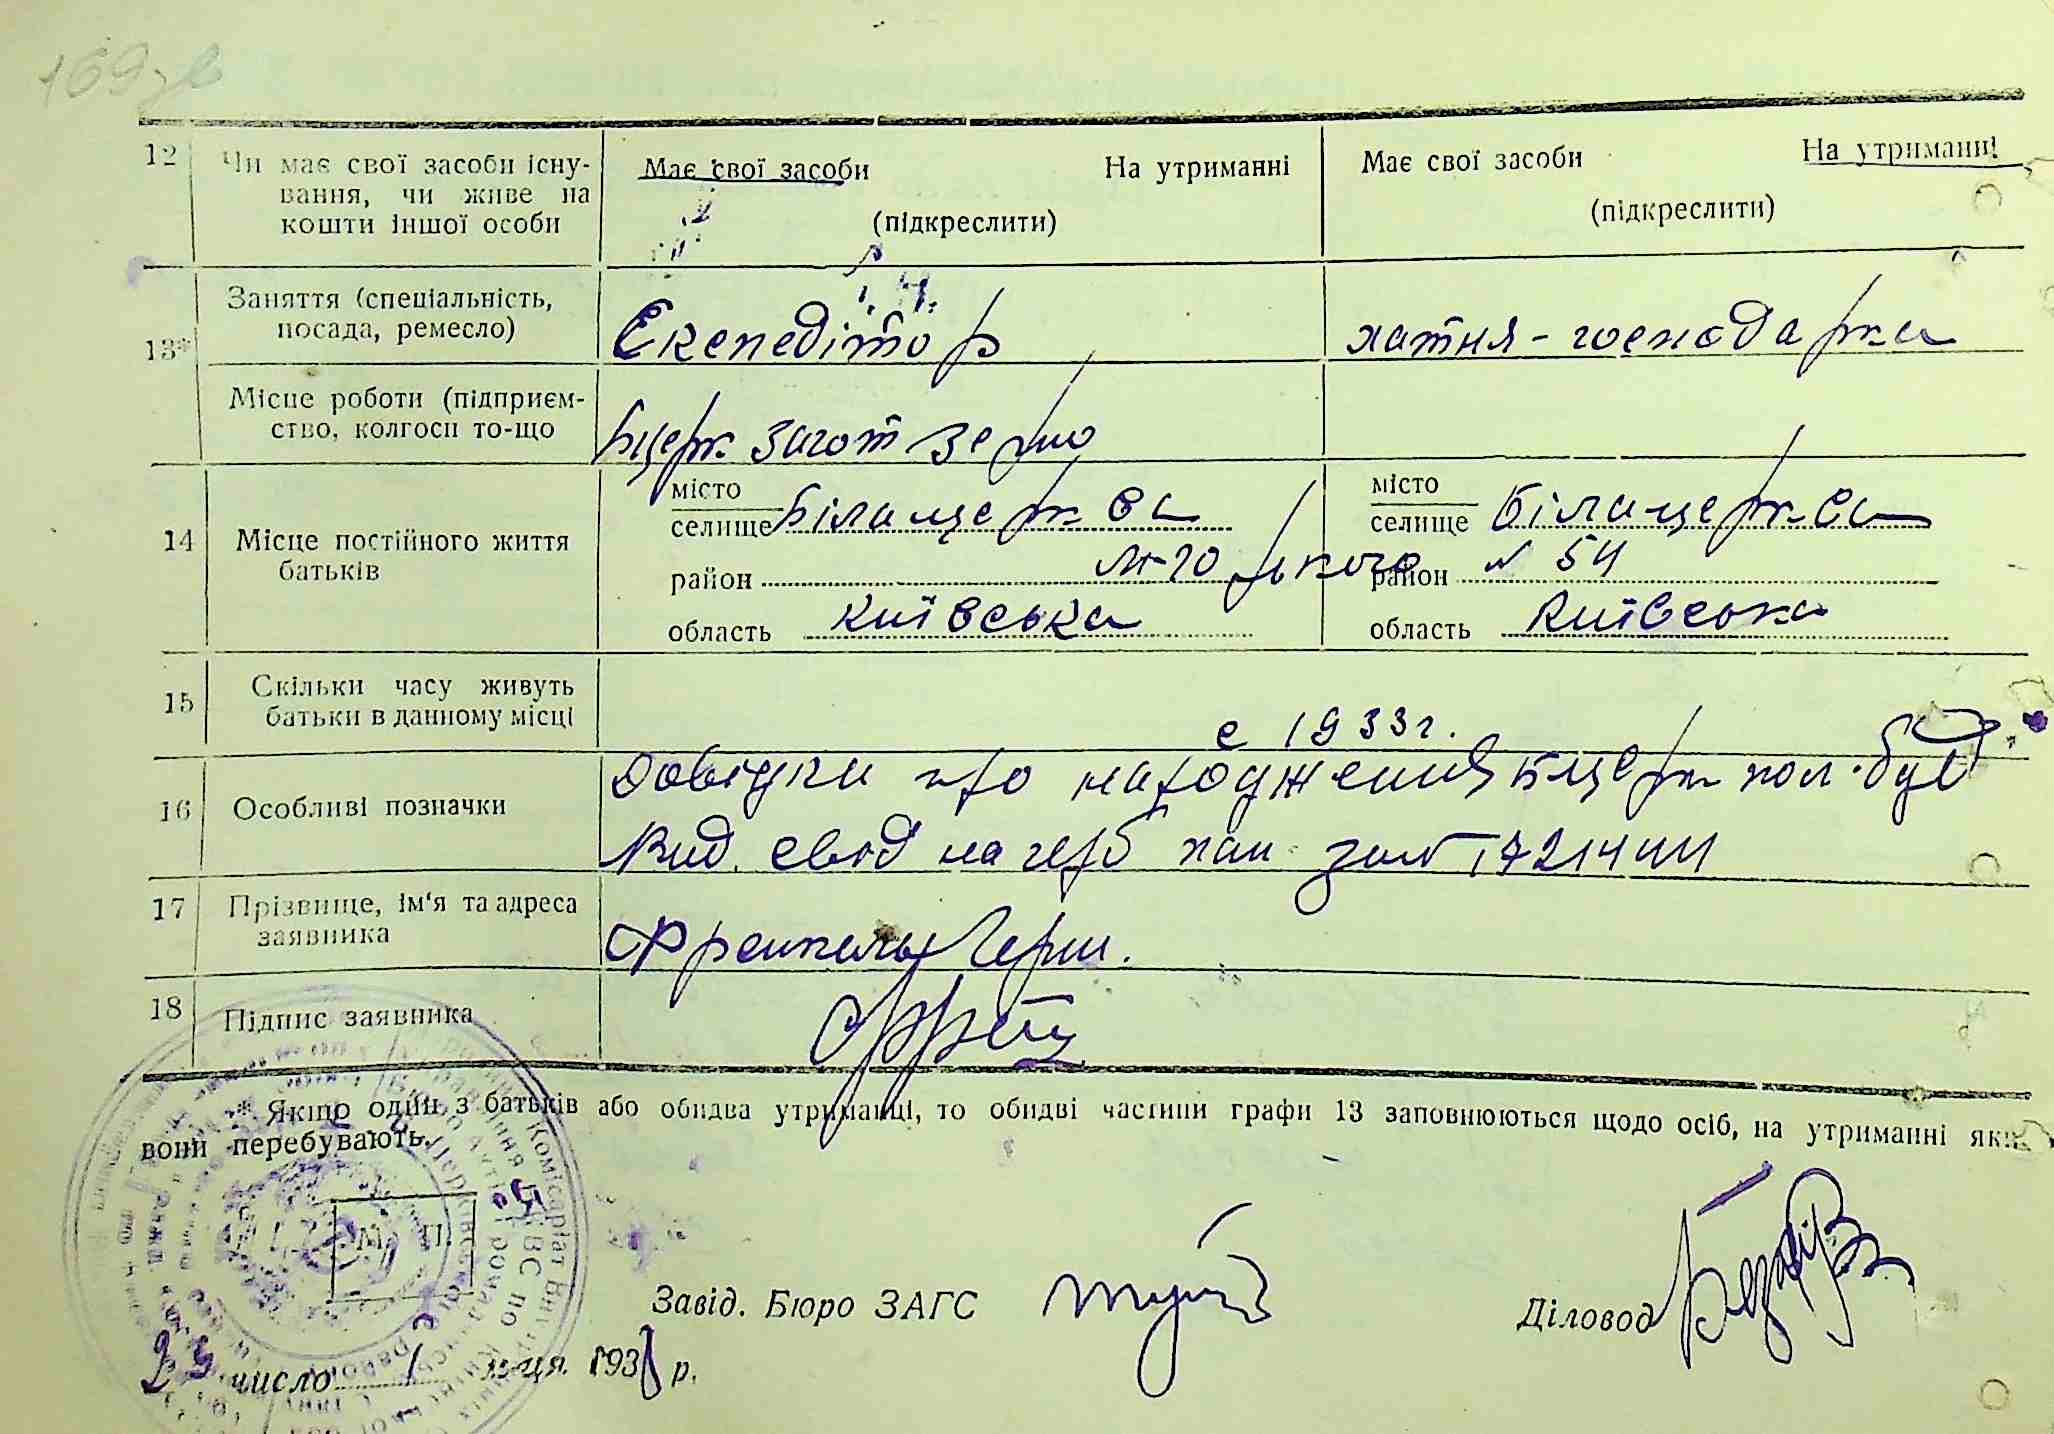 169 зв
12 Чи має свої засоби існу- Має свої засоби На утриманні Має свої засоби На утриманні
вання, чи живе на
кошти іншої особи (підкреслити) (підкреслити)
13* Заняття (спеціальність,
посада, ремесло) Експедітор хатня-господарка
Місце роботи (підприєм-
ство, колгосп то-що Бцерк заготзерно
14 Місце постійного життя
батьків
місто
селище Білацерква
район М-горького
область Київська
місто
селище Білацерква
район № 54
область Київська
15 Скільки часу живуть
батьки в данному місці с 1933г.
16 Особливі позначки Довідки про народження Бцерк пол.
Вид. на герб 17214
17 Прізвище, ім'я та адреса
заявника Френкель Герш.
18 Підпис заявника
* Якщо один з батьків або обидва утриманці, то обидві частини графи 13 заповнюються щодо осіб, на утриманні яких
вони перебувають.
М. П.
Завід. Бюро ЗАГС
Діловод
число 1 м-ця 1938 р.